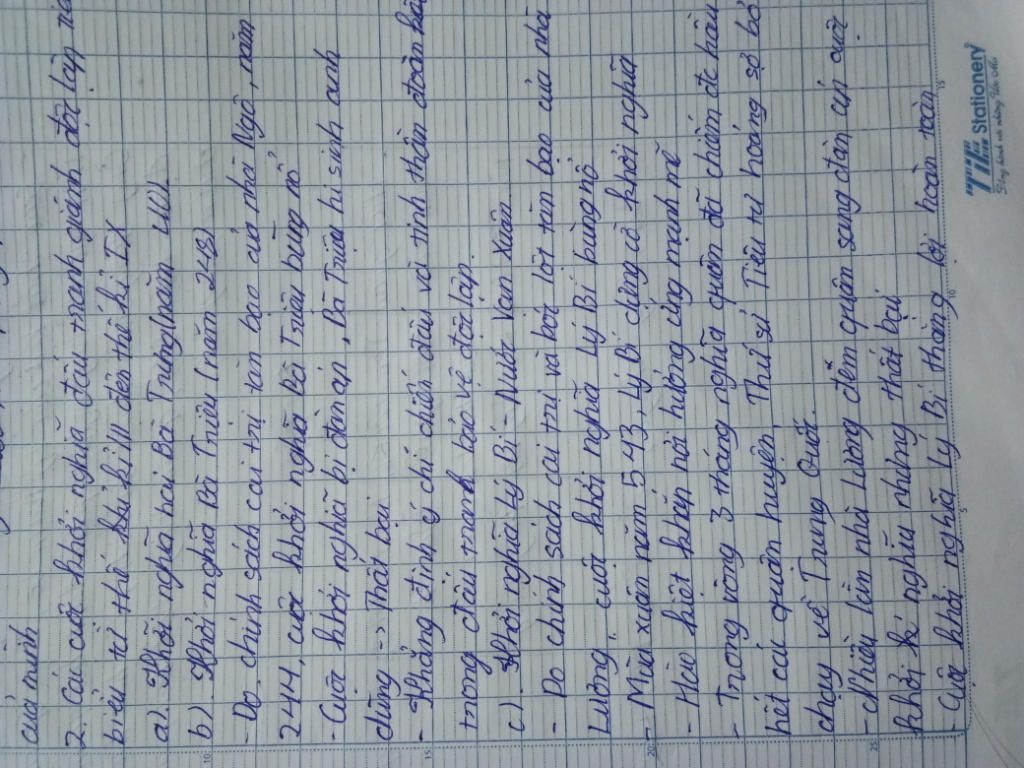 của mình
2. Các cuộc khởi nghĩa đấu tranh giành độc lập tiêu
biểu từ thế kỉ III đến thế kỉ IX
a). Khởi nghĩa hai Bà Trưng (năm
b). Khởi nghĩa Bà Triệu (năm 248)
- Do chính sách cai trị tàn bạo của nhà Ngô, năm
244, cuộc khởi nghĩa Bà Triệu bùng nổ
- Cuộc khởi nghĩa bị đàn áp, Bà Triệu hi sinh anh
dũng -> Thất bại
- Khẳng định ý chí chiến đấu và tinh thần đoàn kết
trong đấu tranh bảo vệ độc lập.
c). Khởi nghĩa Lý Bí - Nước Vạn Xuân
- Do chính sách cai trị và bóc lột tàn bạo của nhà
Lương. cuộc khởi nghĩa Lý Bí bùng nổ
- Mùa xuân năm 543, Lý Bí dựng cờ khởi nghĩa
- Hào kiệt khắp nơi hưởng ứng mạnh mẽ
- Trong vòng 3 tháng nghĩa quân đã chiếm đc hầu
hết các quận huyện, Thứ sử Tiêu tư hoảng sợ bỏ
chạy về Trung Quốc.
- Nhiều lần nhà Lương đem quân sang đàn áp cuộc
khởi nghĩa nhưng thất bại
- Cuộc khởi nghĩa Lý Bí thắng lợi hoàn toàn
10
15
20
25
5
10
15
TTE
Stationery